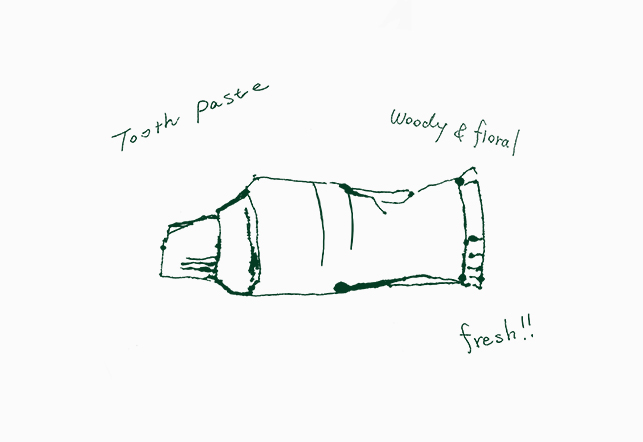 Tooth paste
Woody & floral
fresh!!